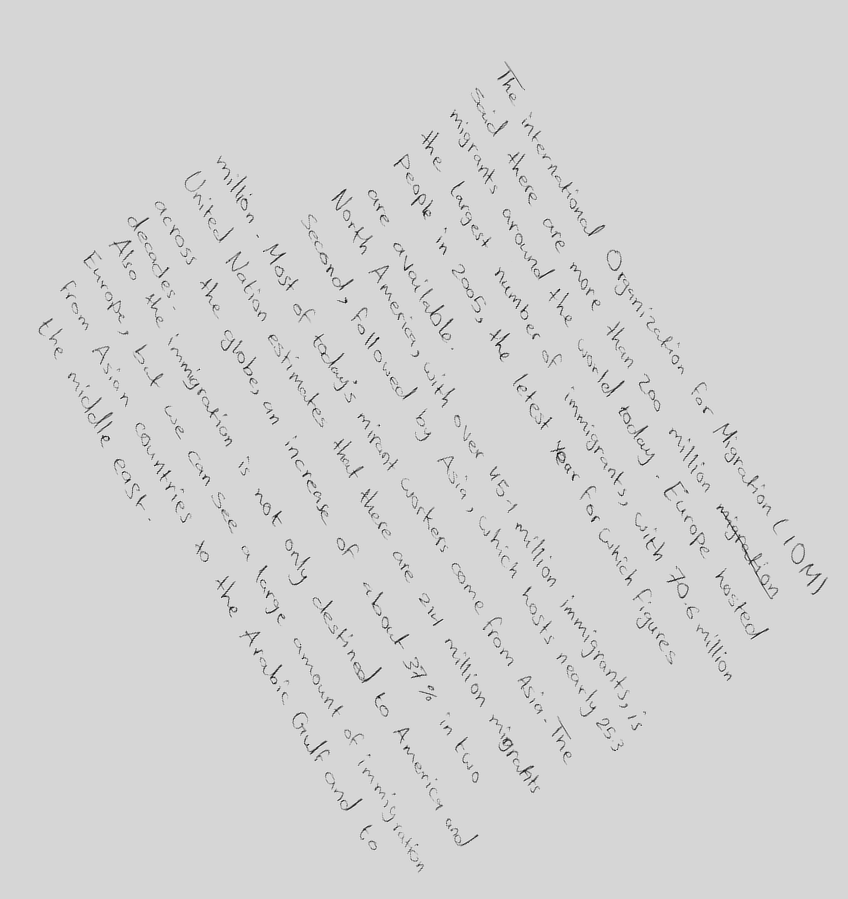 The international Organization for Migration (IOM)
Said there are more than 200 million migration
migrants around the world today. Europe hosted
the largest number of immigrants, with 70.6 million
People in 2005, the letest year for which figures
are available.
North America, with over 45.1 million immigrants, is
Second, followed by Asia, which hosts nearly 25.3
million. Most of today's mirant workers come from Asia. The
United Nation estimates that there are 214 million migrants
across the globe, an increase of about 37% in two
decades.
Also the immigration is not only destined to America and
Europe, but we can see a large amount of immigration
from Asian countries to the Arabic Gulf and to
the middle east.